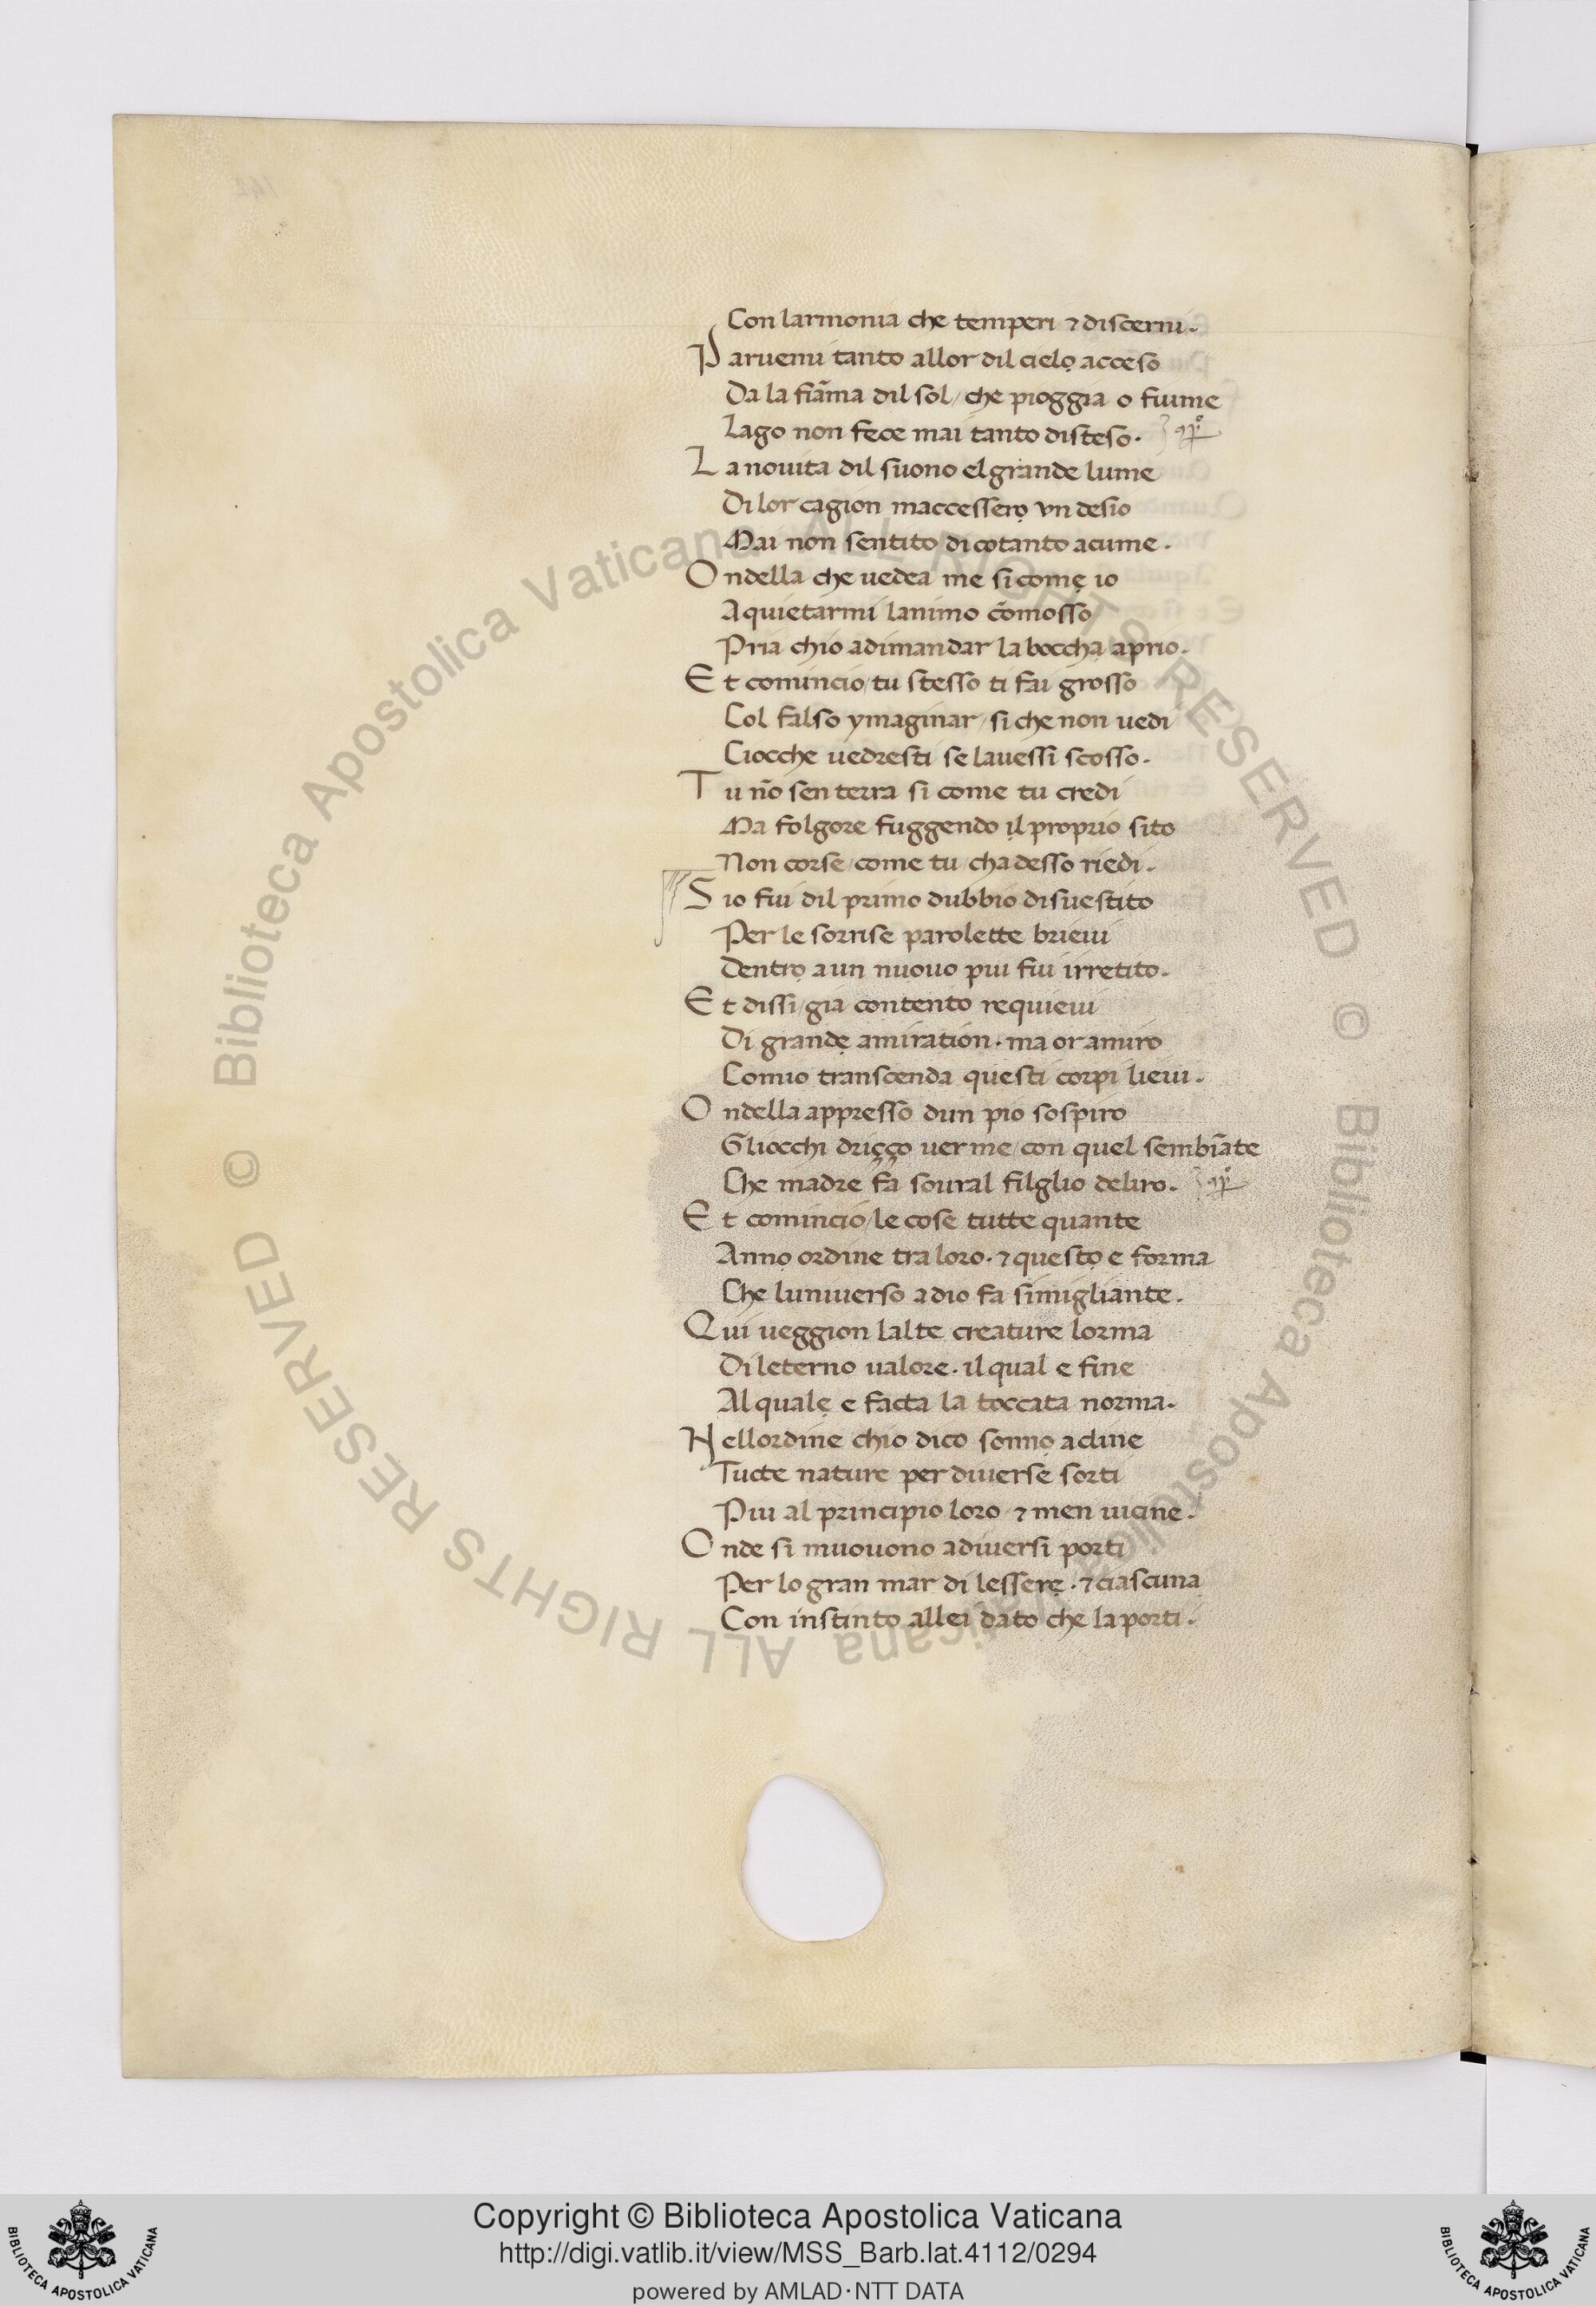 Con larmonia che temperi ⁊ discerni.
Paruenu tanto allor dil cielọ acceso
Da la fiāma dil sol / che pioggia o fiume
Lago non fece mai tanto disteso.
La nouita dil suono el grande lume
Di lor cagion maccesserọ vn desio
Mai non sentito di cotanto acume.
Ondella che uedea me si comẹ io
A quietarmi lanimo cōmosso
Pria chio adimandar la bocchạ aprio.
Et comincio / tu stesso ti fai grosso
Col falso ymaginar / si che non uedi
Ciocche uedresti se lauessi scosso.
Tu nō sen terra si come tu credi
Ma folgore fuggendo il proprio sito
Non corse / come tu / cha desso riedi.
Sio fui dil primo dubbio disuestito
Per le sorrise parolette brieui
Dentrọ a un nuouo piu fui irretito.
Et dissi / gia contento requieui
Di grandẹ amiration. ma or amiro
Comio transcenda questi corpi lieui.
Ondella appresso dun pio sospiro
Gliocchi driçço uer me / con quel sembiāte
Che madre fa soural filglio deliro.
Et comincio / le cose tutte quante
Annọ ordine tra loro. ⁊ questọ e forma
Che luniuerso a dio fa simigliante.
Qui ueggion lalte creature lorma
Di leterno ualore. il qual e fine
Al qualẹ e facta la toccata norma.
Nellordine chio dico sonnọ acline
Tucte nature per diuerse sorti
Piu al principio loro / ⁊ men uicine.
Onde si muouono a diuersi porti
Per lo gran mar di lesserẹ. ⁊ ciascuna
Con instinto allei dato che la porti.
© Biblioteca Apostolica Vaticana ALL RIGHTS RESERVED © Biblioteca Apostolica Vaticana ALL RIGHTS RESERVED
Copyright © Biblioteca Apostolica Vaticana
http://digi.vatlib.it/view/MSS_Barb.lat.4112/0294
powered by AMLAD·NTT DATA
BIBLIOTECA APOSTOLICA VATICANA
BIBLIOTECA APOSTOLICA VATICANA